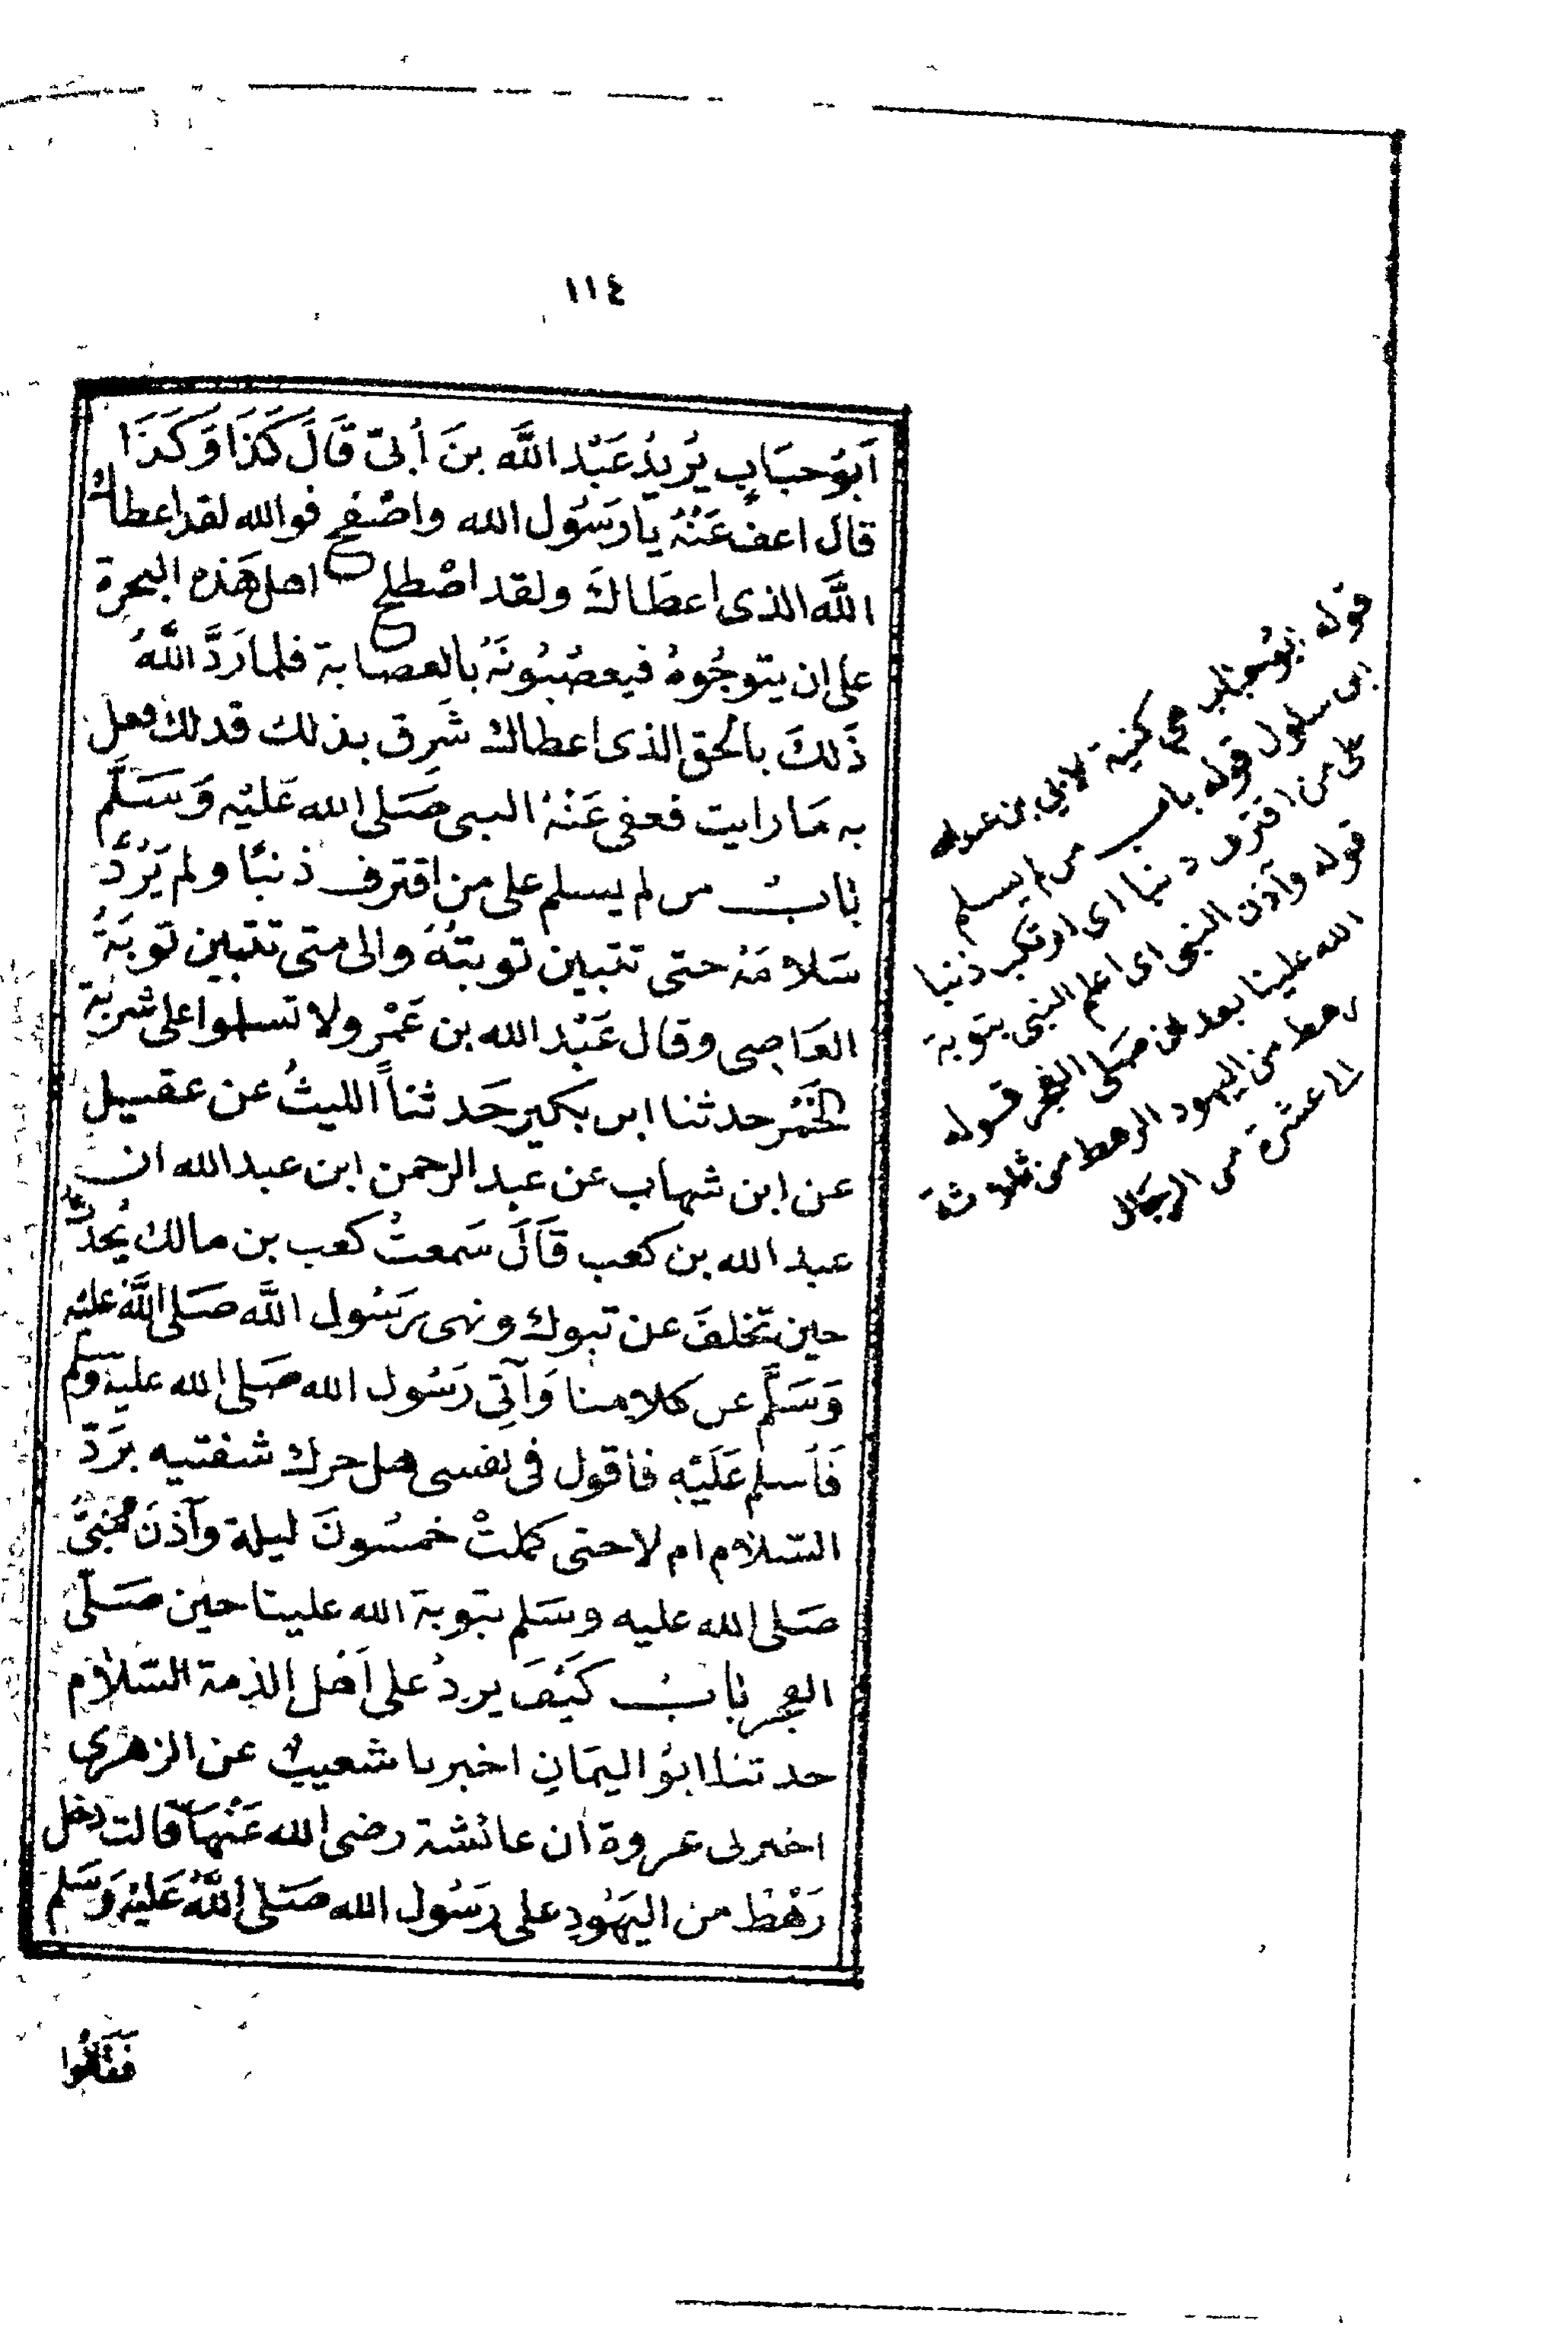 ١١٤
اَبُوحبَابٍ يُرِيدُ عَبْد اللَّه بنَ اُبىّ قَالَ كَذَا وَكَذَا
قالَ اعف عَنْهُ يَا رَسُول الله واصْفح فوالله لقد اعطاك
اللَّه الذى اعطَاكَ ولقد اصْطلح اهل هَذه البحرة
على ان يتوجُوهُ فيعصّبُونَهُ بالعصابة فلما رَدَّ اللَّهُ
ذَلكَ بالحق الذى اعطاك شَرِق بذلك فذلك فعل
به مَا رايت فعفى عَنْهُ النبى صَلى الله عَليْه وَسَلَّم
بَابُ من لم يسلم على من اقترف ذنبًا ولم يَرُدّ
سَلامَهُ حتى تتبين توبتهُ والى متى تتبين توبَةُ
العَاصى وقال عَبْد الله بن عَمْرٍ ولا تسلموا على شربة
الخَمْر حدثنا ابن بكير حَدثناَ الليثُ عن عقيل
عن ابن شهاب عن عبد الرحمن ابن عبد الله ان
عبد الله بن كعب قَالَ سَمعتُ كعب بن مالك يُحدّث
حين تخلفَ عن تبوك ونهى رَسُول اللَّه صَلى اللَّهُ عَليْه
وَسَلَّم عن كلامنا وَآتِى رَسُول الله صَلى الله عليه وسلم
فَاَسلم عَلَيْهِ فاَقول فى نفسى هل حرك شفتيه بِرَدّ
السّلام ام لا حتى كملتْ خمسُونَ ليلة وآذنَ النبىُّ
صَلى الله عليه وسَلم بتوبة الله علينا حين صَلّى
الفجر بَابُ كَيْفَ يردُ على اَهْل الذمة السّلام
حدثنا ابوُ اليمَانِ اخبرنا شعيبٌ عن الزهرى
اخبرنى عروة ان عائشة رضى الله عَنْهَا قالت دخل
رَهْط من اليَهُود على رسُول الله صَلى اللَّهُ عَليْه وَسَلم
فَقَالُوا
قوله ابوُحباب هى كنية لابى بن عبد الله
ابن سلول قوله باب من لم يسلم
على من اقترف دنبا اى ارتكب ذنبا
قوله وآذن النبى اى اعلم النبى بتوبة
الله علينا بعد ان صَلى الفجر قوله
رهط من اليهود الرهط من ثلاثة
الى عشرة من الرجَال